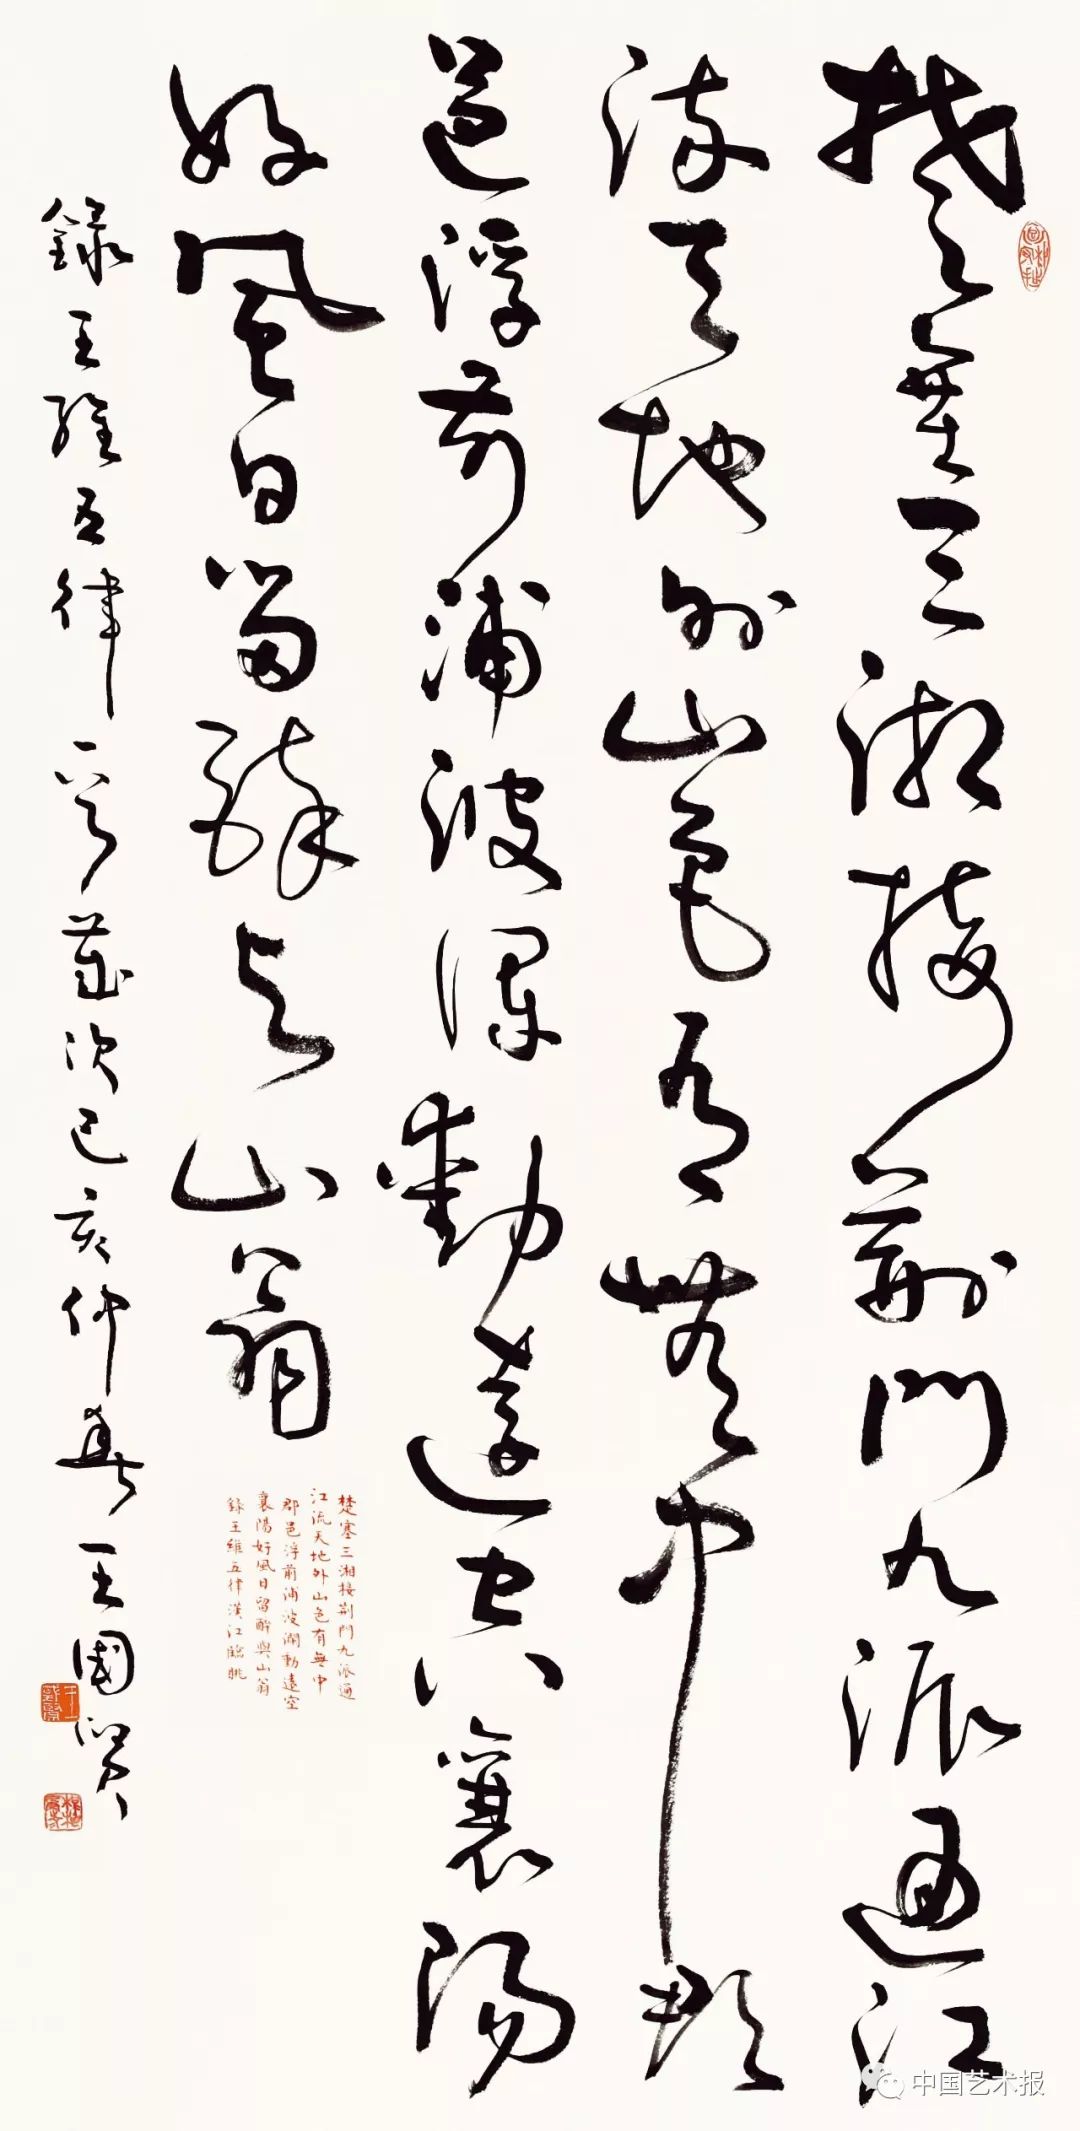 楚塞三湘接荊門九派通江
流天地外山色有無中郡
邑浮前浦波瀾動遠空襄陽
好風日留醉與山翁
錄王維五律一首歲次己亥仲春王國賢
楚塞三湘接荊門九派通
江流天地外山色有無中
郡邑浮前浦波瀾動遠空
襄陽好風日留醉與山翁
錄王維五律漢江臨眺
中国艺术报